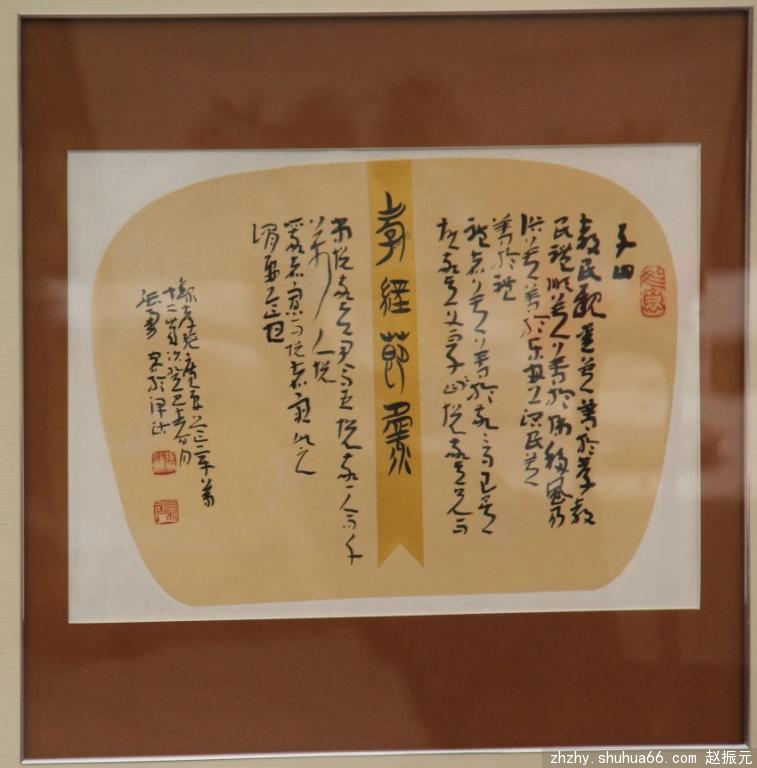 子曰
教民親愛莫善於孝教
民禮順莫善於悌移風易
俗莫善於樂安上治民莫
善於禮
禮者敬而已矣
故敬其父則子悅敬其兄則
孝經節錄
弟悅敬其君則臣悅敬一人而千
萬人悅
敬者寡而悅者衆此之
謂要道也
錄孝經廣要道章
十二章次癸巳月
於津沽
zhzhy.shuhua66.com 赵振元